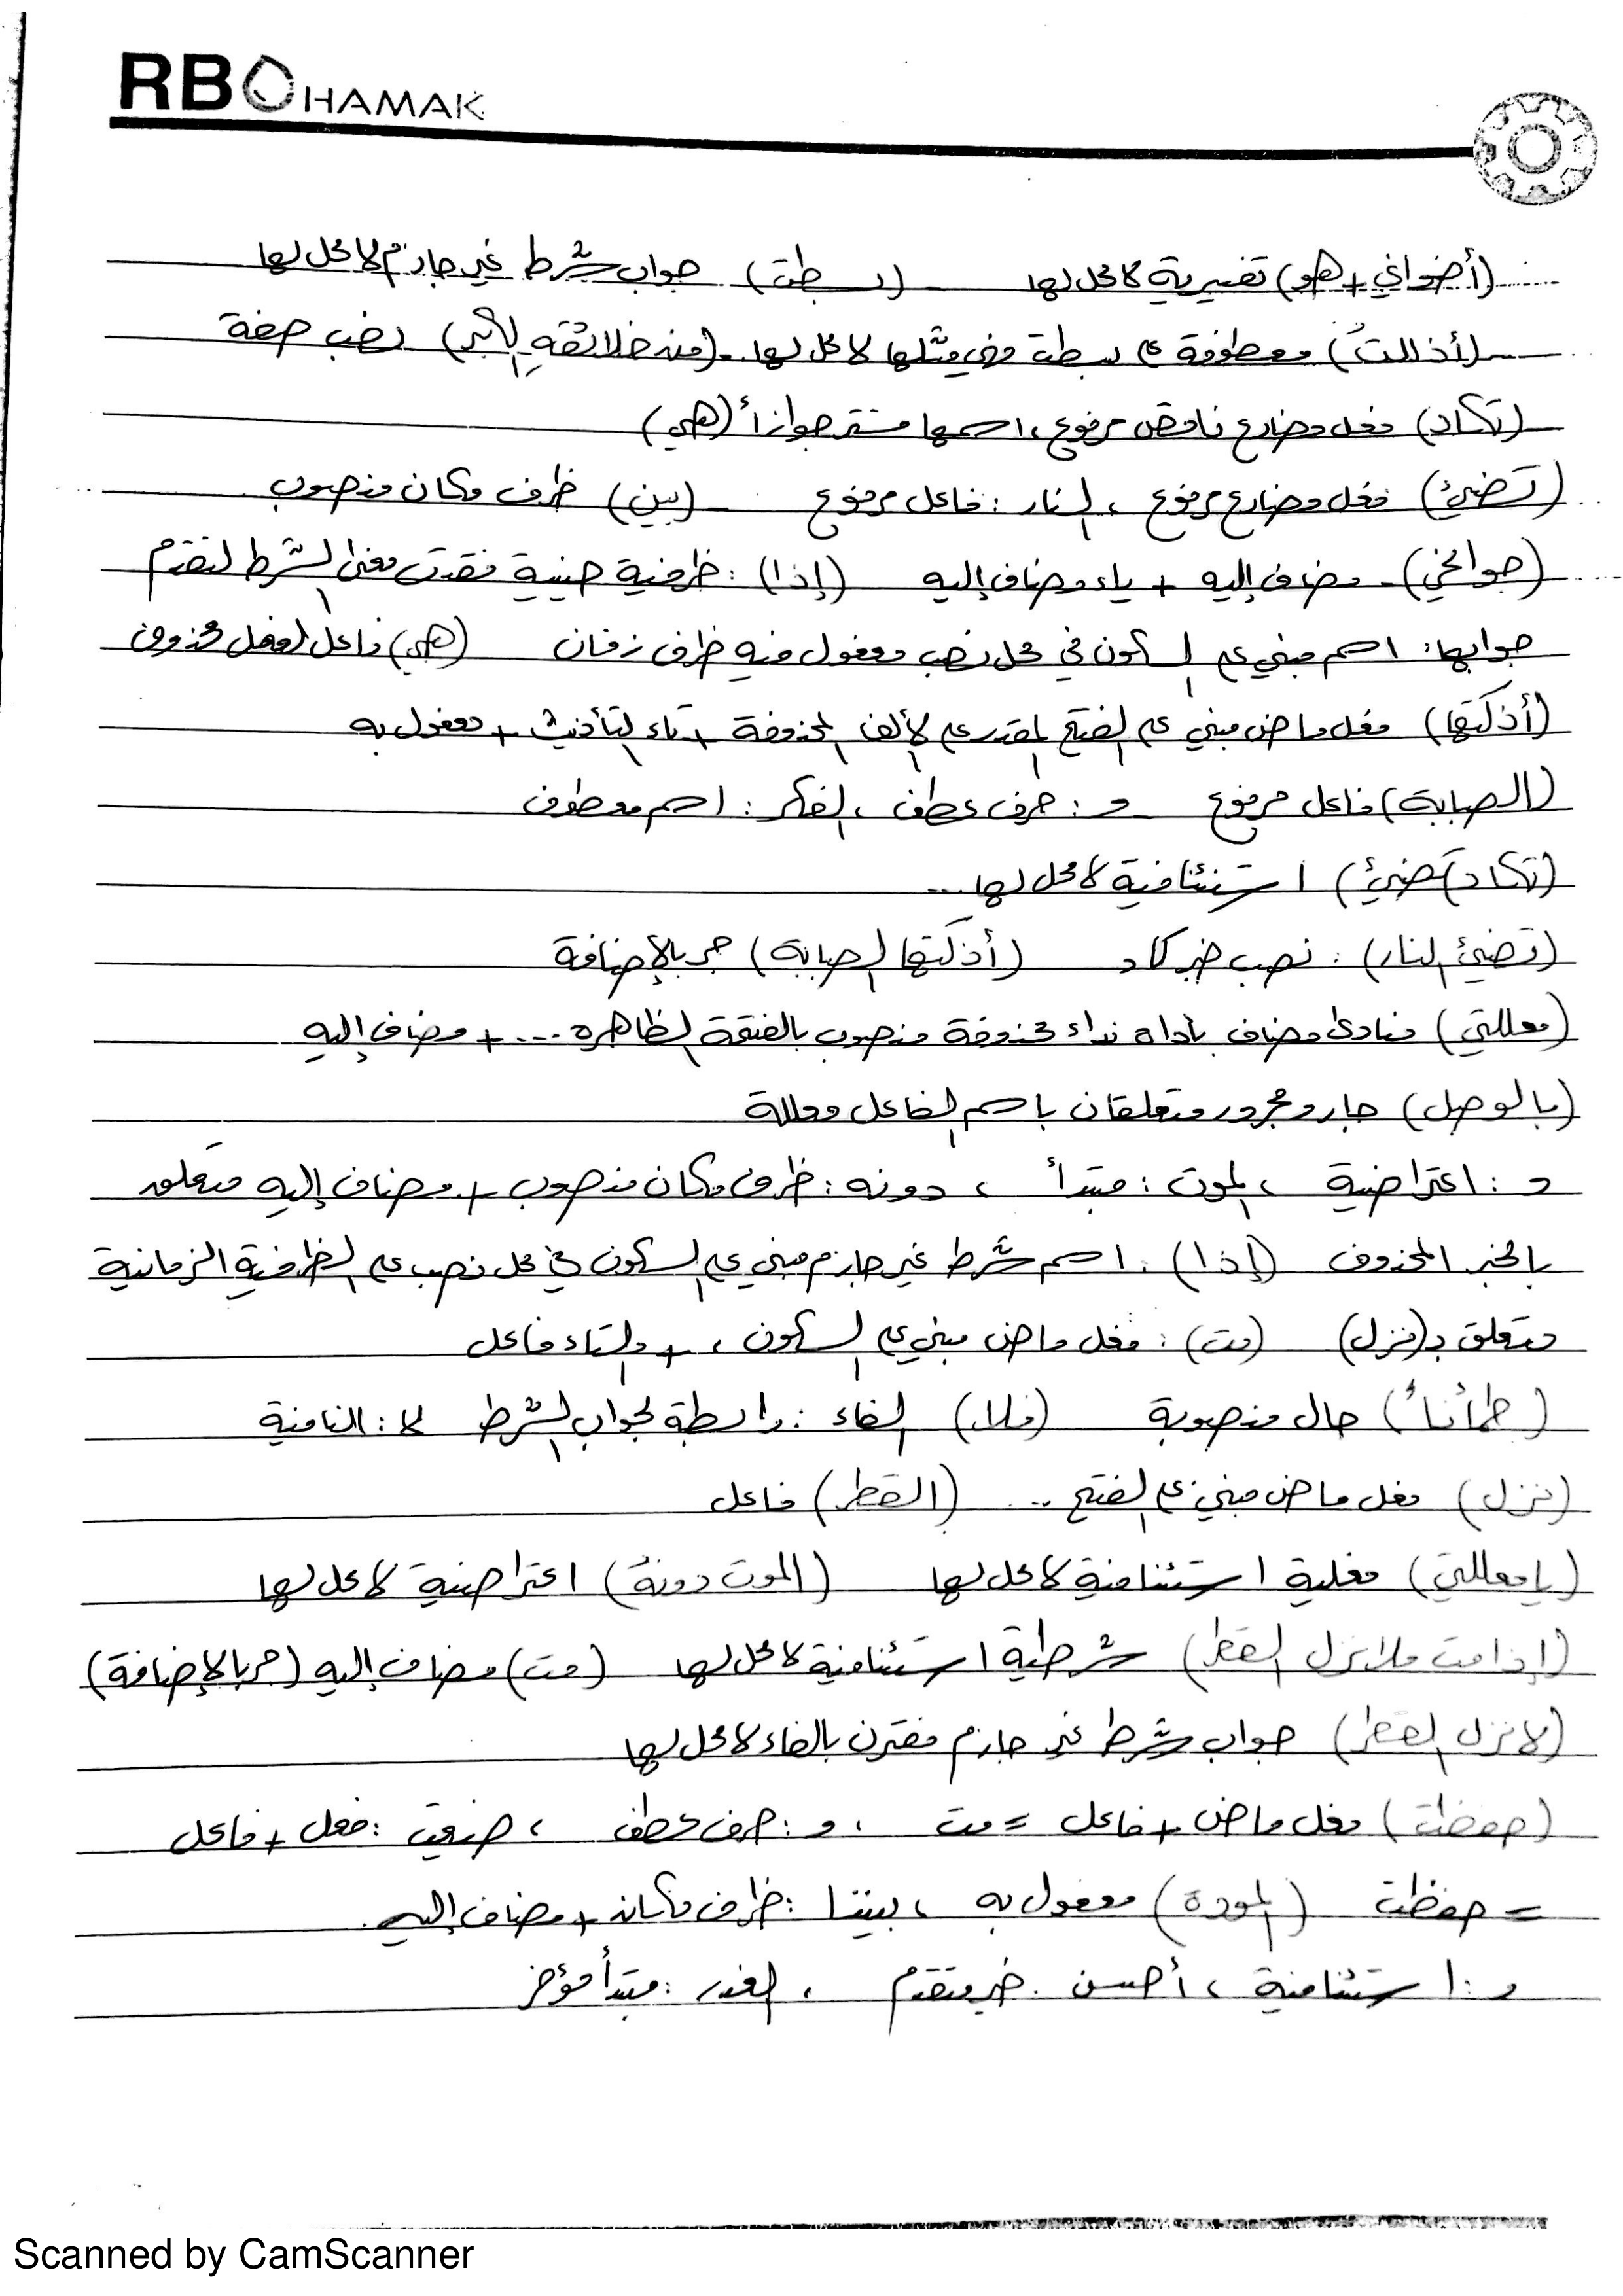 RB HAMAK
(أضواني + هو) تفسيرية لا محل لها (بسطت) جواب شرط غير جازم لا محل لها
(أذللتُ) معطوفة على بسطت فهي مثلها لا محل لها . (من خلائقهِ الكبر) نصب صفة
(تكاد) فعل مضارع ناقص مرفوع، اسمها مستتر جوازاً (هي)
(تضيءُ) فعل مضارع مرفوع ، النار : فاعل مرفوع (بين) ظرف مكان منصوب
(جوانحي) مضاف إليه + ياء مضاف إليه (إذا) : ظرفية حينية فقدت معنى الشرط لتقدم
جوابها: اسم مبني على السكون في محل نصب مفعول فيه ظرف زمان (هي) فاعل لفعل محذوف
(أذكَتها) فعل ماض مبني على الفتح المقدر على الألف المحذوفة + تاء التأنيث + مفعول به
(الصبابة) فاعل مرفوع و : حرف عطف ، الفكر : اسم معطوف
(تكاد تضيءُ) استئنافية لا محل لها ...
(تضيءُ النار) : نصب خبر كاد (أذكتها الصبابة) جر بالإضافة
(معللتي) منادى مضاف بأداة نداء محذوفة منصوب بالفتحة الظاهرة ... + مضاف إليه
(بالوصل) جار ومجرور متعلقان باسم الفاعل معللة
و : اعتراضية ، الموت : مبتدأ ، دونه : ظرف مكان منصوب + مضاف إليه متعلق
بالخبر المحذوف (إذا) : اسم شرط غير جازم مبني على السكون في محل نصب على الظرفية الزمانية
متعلق بـ (نزل) (مت) : فعل ماض مبني على السكون ، + والتاء فاعل
(ظمآناً) حال منصوبة (فلا) الفاء : رابطة لجواب الشرط لا : النافية
(نزل) فعل ماض مبني على الفتح .. (القطر) فاعل
(يا معللتي) فعلية استئنافية لا محل لها (الموت دونهُ) اعتراضية لا محل لها
(إذا مت فلا نزل القطر) شرطية استئنافية لا محل لها (مت) مضاف إليه (جر بالإضافة)
(لا نزل القطر) جواب شرط غير جازم مقترن بالفاء لا محل لها
(حفظت) فعل ماض + فاعل = مت ، و : حرف عطف ، ضيعت : فعل + فاعل
= حفظت (المودة) مفعول به ، بيننا : ظرف مكان + مضاف إليه .
و : استئنافية ، أحسن : خبر مقدم ، الغدر : مبتدأ مؤخر
Scanned by CamScanner